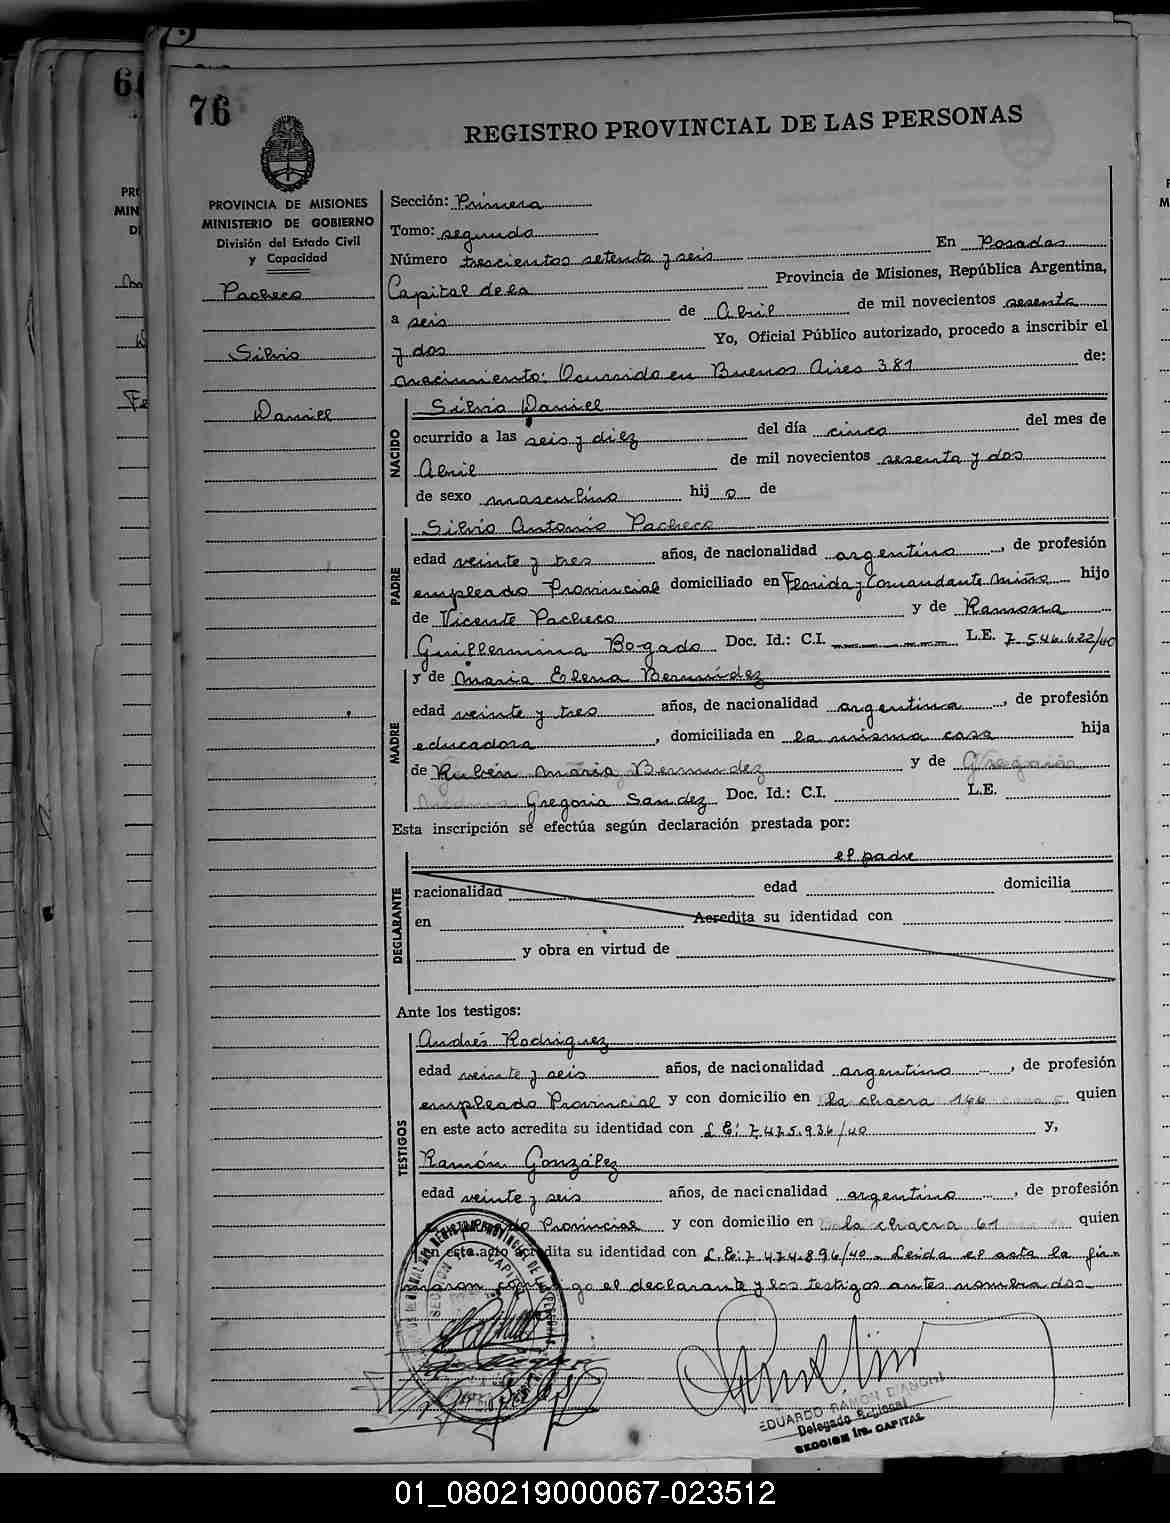 76
REGISTRO PROVINCIAL DE LAS PERSONAS
PROVINCIA DE MISIONES
MINISTERIO DE GOBIERNO
División del Estado Civil
y Capacidad
Pacheco
Silvio
Daniel
Sección: Primera
Tomo: segundo
Número trescientos setenta y seis En Posadas
Capital de la Provincia de Misiones, República Argentina,
a seis de Abril de mil novecientos sesenta
y dos Yo, Oficial Público autorizado, procedo a inscribir el
nacimiento: Ocurrido en Buenos Aires 381 de:
NACIDO
Silvio Daniel
ocurrido a las seis y diez del día cinco del mes de
Abril de mil novecientos sesenta y dos
de sexo masculino hij o de
PADRE
Silvio Antonio Pacheco
edad veinte y tres años, de nacionalidad argentino, de profesión
empleado Provincial domiciliado en Florida y Comandante Miño hijo
de Vicente Pacheco y de Ramona
Guillermina Bogado Doc. Id.: C.I. L.E. 7.546.622/40
MADRE
y de Maria Elena Bermúdez
edad veinte y tres años, de nacionalidad argentina, de profesión
educadora, domiciliada en la misma casa hija
de Rubén Mario Bermudez y de Gregoria
Gregoria Sandez Doc. Id.: C.I. L.E.
Esta inscripción se efectúa según declaración prestada por:
DECLARANTE
el padre
nacionalidad edad domicilia
en Acredita su identidad con
y obra en virtud de
Ante los testigos:
TESTIGOS
Andrés Rodriguez
edad veinte y seis años, de nacionalidad argentino, de profesión
empleado Provincial y con domicilio en la chacra 166 quien
en este acto acredita su identidad con L.E: 7.475.936/40 y,
Ramón González
edad veinte y seis años, de nacionalidad argentino, de profesión
Provincial y con domicilio en la chacra 61 quien
en este acto acredita su identidad con L.E: 7.474.896/40 - Leida el acta la fir-
maron conmigo el declarante y los testigos antes nombrados
EDUARDO RAMON BIANCHI
Delegado Regional
SECCION 1ra. CAPITAL
01_080219000067-023512